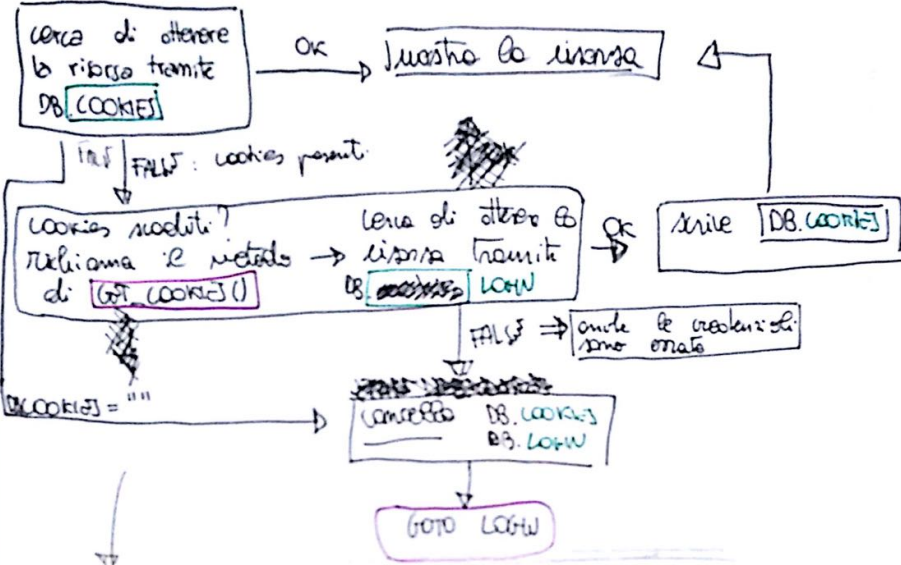 cerca di ottenere
la risorsa tramite
DB.COOKIES
OK
mostra la risorsa
FALSE
FALSE : cookies presenti
cookies scaduti?
richiama il metodo →
di GET_COOKIES()
cerca di ottenere la
risorsa tramite
DB. LOGIN
OK
scrive DB.COOKIES
FALSE ⇒ anche le credenziali
sono errate
DB.COOKIES = ""
cancella DB.COOKIES
DB.LOGIN
GOTO LOGIN